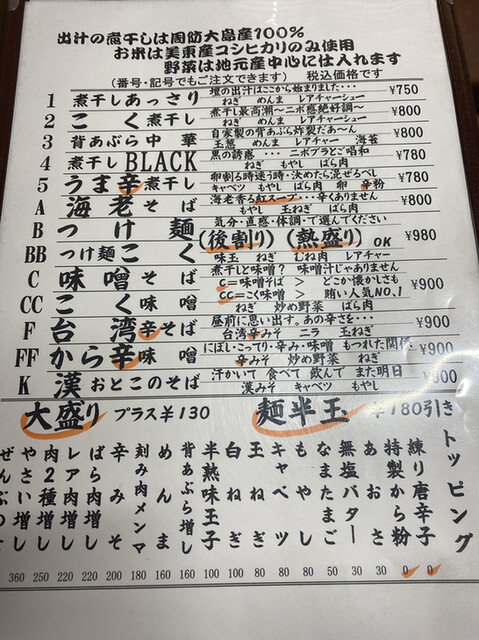 出汁の煮干しは周防大島産100%
お米は美東産コシヒカリのみ使用
野菜は地元産中心に仕入れます
(番号・記号でもご注文できます) 税込価格です
1 煮干しあっさり 壇の出汁はここから始まりました・・・ ¥750
ねぎ めんま レアチャーシュー
2 こく煮干し 煮干し最高潮～ニボ感絶好調～ ¥800
ねぎ めんま レアチャーシュー
3 背あぶら中華 自家製の背あぶら炸裂だあ～ん ¥800
玉葱 めんま レアチャー 海苔
4 煮干しBLACK 黒の誘惑・・・ニボブラとご唱和 ¥780
ねぎ もやし ばら肉
5 うま辛煮干し 卵割る時迷う時・決めたら混ぜるべし ¥780
キャベツ もやし ばら肉 卵 辛粉
A 海老そば 海老香る紅スープ・・・辛くありません ¥780
もやし 玉ねぎ ばら肉
B つけ麺 気分・直感・体調・で選んでください ¥980
(後割り)(熱盛り)OK
BB つけ麺こく 味玉 ねぎ むね肉 レアチャー
C 味噌そば 煮干しと味噌? 味噌汁じゃありません ¥900
C=味噌そば > どこか懐かしさも
CC こく味噌 CC=こく味噌 > 賄い人気NO.1
ねぎ 炒め野菜 ばら肉
F 台湾辛そば 昼前に思い出す。あの辛さを・・・ ¥900
台湾辛みそ ニラ 玉ねぎ
FF から辛味噌 にぼし・こってり・辛み・味噌 もつれた関係 ¥900
辛みそ 炒め野菜 ねぎ
K 漢おとこのそば 汗かいて 食べて 飲んで また明日 ¥900
漢みそ キャベツ もやし
大盛り プラス¥130 麺半玉 ¥180引き
トッピング
練り唐辛子 0
特製から粉 0
あおさ 30
無塩バター 50
なまたまご 50
もやし 50
キャベツ 80
玉ねぎ 80
白ねぎ 100
半熟味玉子 100
背あぶら増し 160
めんま 160
刻み肉メンマ 160
辛みそ 200
ばら肉増し 220
レア肉増し 220
肉2種増し 250
やさい増し
ぜんぶのせ 360